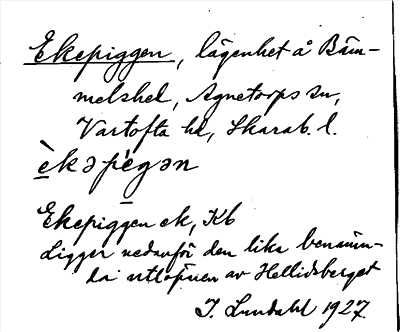 Ekepiggen, lägenhet å Bäm-
melshed, Agnetorps sn,
Vartofta hd, Skarab. l.
èkəpègən
Ekepiggen ek, Kb
Ligger nedanför den lika benämn-
da utlöparen av Hellidsberget
I. Lundahl 1927.